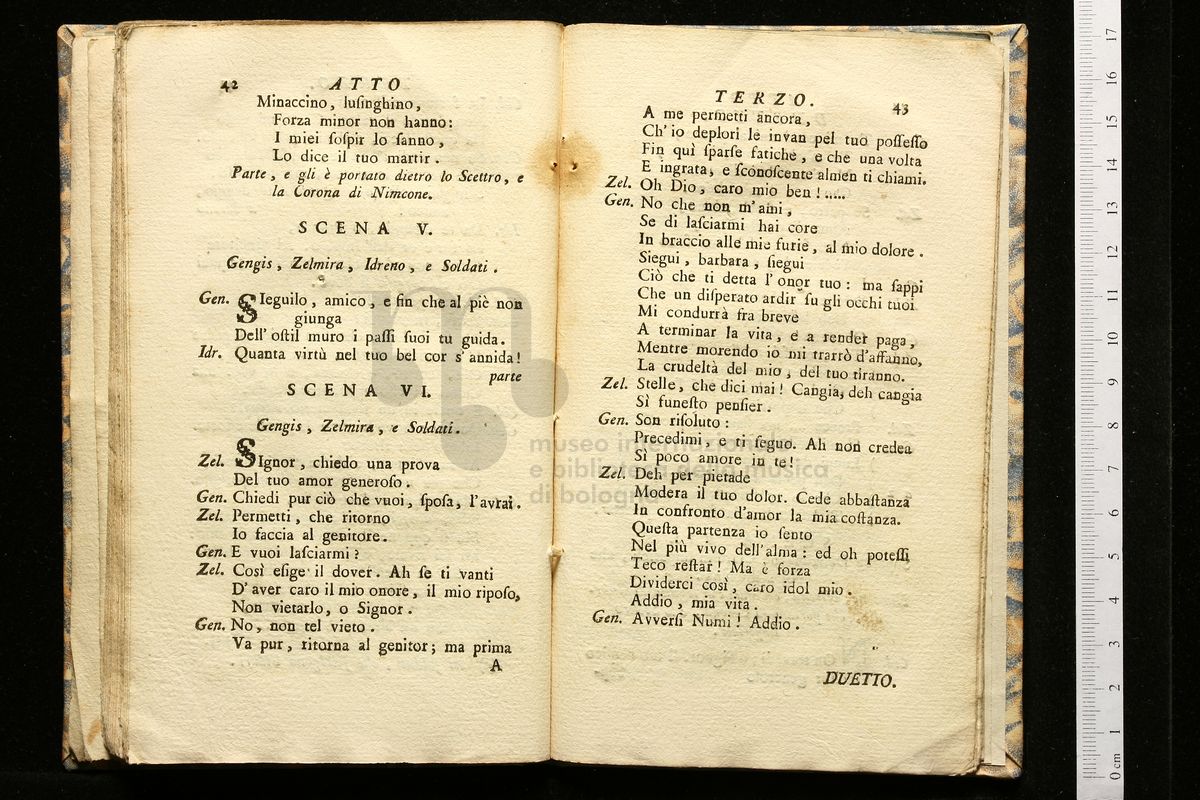 42 ATTO
Minaccino, luſinghino,
Forza minor non hanno:
I miei ſoſpir lo ſanno,
Lo dice il tuo martir.
Parte, e gli è portato dietro lo Scettro, e
la Corona di Nimcone.
SCENA V.
Gengis, Zelmira, Idreno, e Soldati.
Gen. SIeguilo, amico, e fin che al piè non
giunga
Dell' oſtil muro i paſſi ſuoi tu guida.
Idr. Quanta virtù nel tuo bel cor s'annida!
parte
SCENA VI.
Gengis, Zelmira, e Soldati.
Zel. SIgnor, chiedo una prova
Del tuo amor generoſo.
Gen. Chiedi pur ciò che vuoi, ſpoſa, l'avrai.
Zel. Permetti, che ritorno
Io faccia al genitore.
Gen. E vuoi laſciarmi?
Zel. Così eſige il dover. Ah ſe ti vanti
D' aver caro il mio onore, il mio ripoſo,
Non vietarlo, o Signor.
Gen. No, non tel vieto.
Va pur, ritorna al genitor; ma prima
A
TERZO. 43
A me permetti ancora,
Ch' io deplori le invan pel tuo poſſeſſo
Fin quì ſparſe fatiche, e che una volta
E ingrata, e ſconoſcente almen ti chiami.
Zel. Oh Dio, caro mio ben!.....
Gen. No che non m'ami,
Se di laſciarmi hai core
In braccio alle mie furie, al mio dolore.
Siegui, barbara, ſiegui
Ciò che ti detta l'onor tuo: ma ſappi
Che un diſperato ardir ſu gli occhi tuoi
Mi condurrà fra breve
A terminar la vita, e a render paga,
Mentre morendo io mi trarrò d'affanno,
La crudeltà del mio, del tuo tiranno.
Zel. Stelle, che dici mai! Cangia, deh cangia
Sì funeſto penſier.
Gen. Son riſoluto:
Precedimi, e ti ſeguo. Ah non credea
Sì poco amore in te!
Zel. Deh per pietade
Modera il tuo dolor. Cede abbaſtanza
In confronto d'amor la mia coſtanza.
Queſta partenza io ſento
Nel più vivo dell'alma: ed oh poteſſi
Teco reſtar! Ma è forza
Dividerci così, caro idol mio.
Addio, mia vita.
Gen. Avverſi Numi! Addio.
DUETTO.
museo internazionale
e biblioteca della musica
di bologna
0 cm 1 2 3 4 5 6 7 8 9 10 11 12 13 14 15 16 17